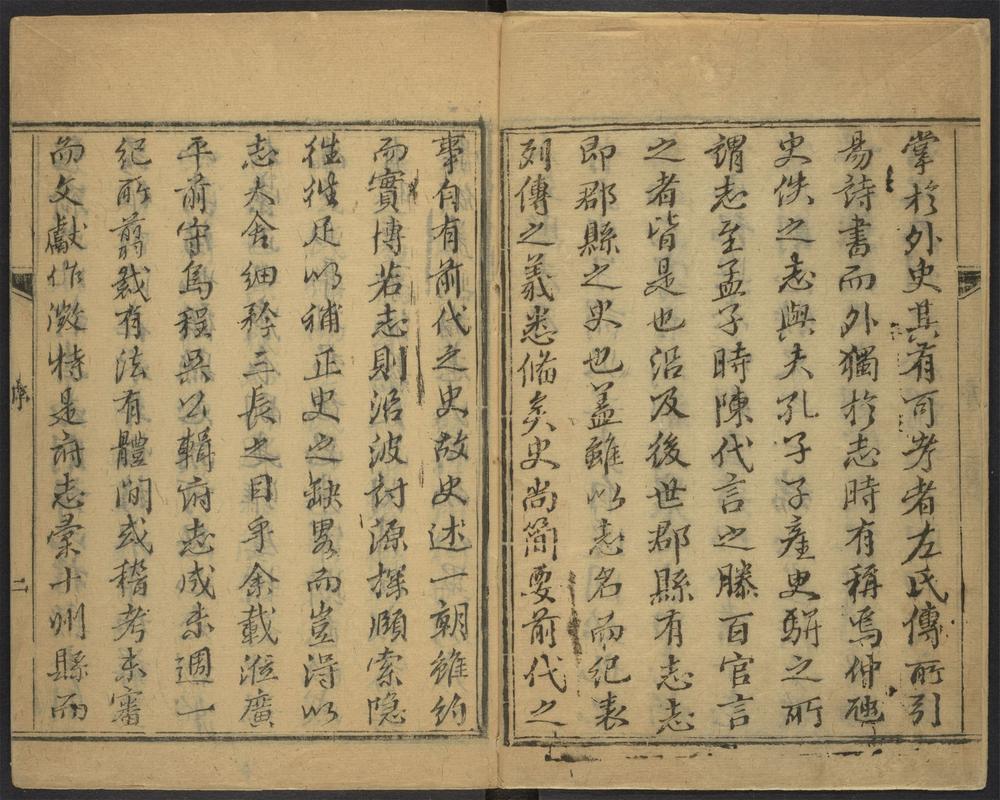 掌於外史其有可考者左氏傳所引
易詩書而外獨於志時有稱焉仲虺
史佚之志與夫孔子子產史駢之所
謂志至孟子時陳代言之滕百官言
之者皆是也沿及後世郡縣有志志
即郡縣之史也蓋雖以志名而紀表
列傳之義悉俻矣史尚簡要前代之
事自有前代之史故史述一朝雖約
而實博若志則沿波討源探賾索隐
徃徃足以補正史之缺畧而豈得以
志大舍細矜三長之目乎余載涖廣
平前守烏程吳公輯府志成未週一
紀所翦裁有法有體間或稽考未審
而文獻作徵特是府志彙十州縣而
序
二